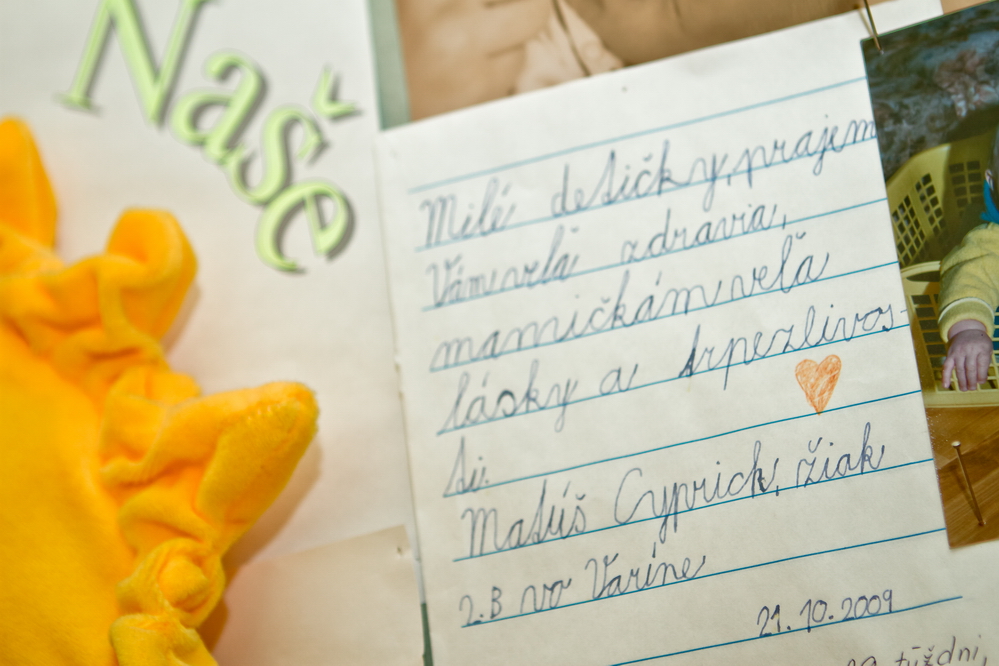 Naše
Milé detičky, prajem
Vám veľa zdravia,
mamičkám veľa
lásky a trpezlivos-
ti.
Matúš Cyprich, žiak
2.B vo Varíne
21.10.2009
týždni,